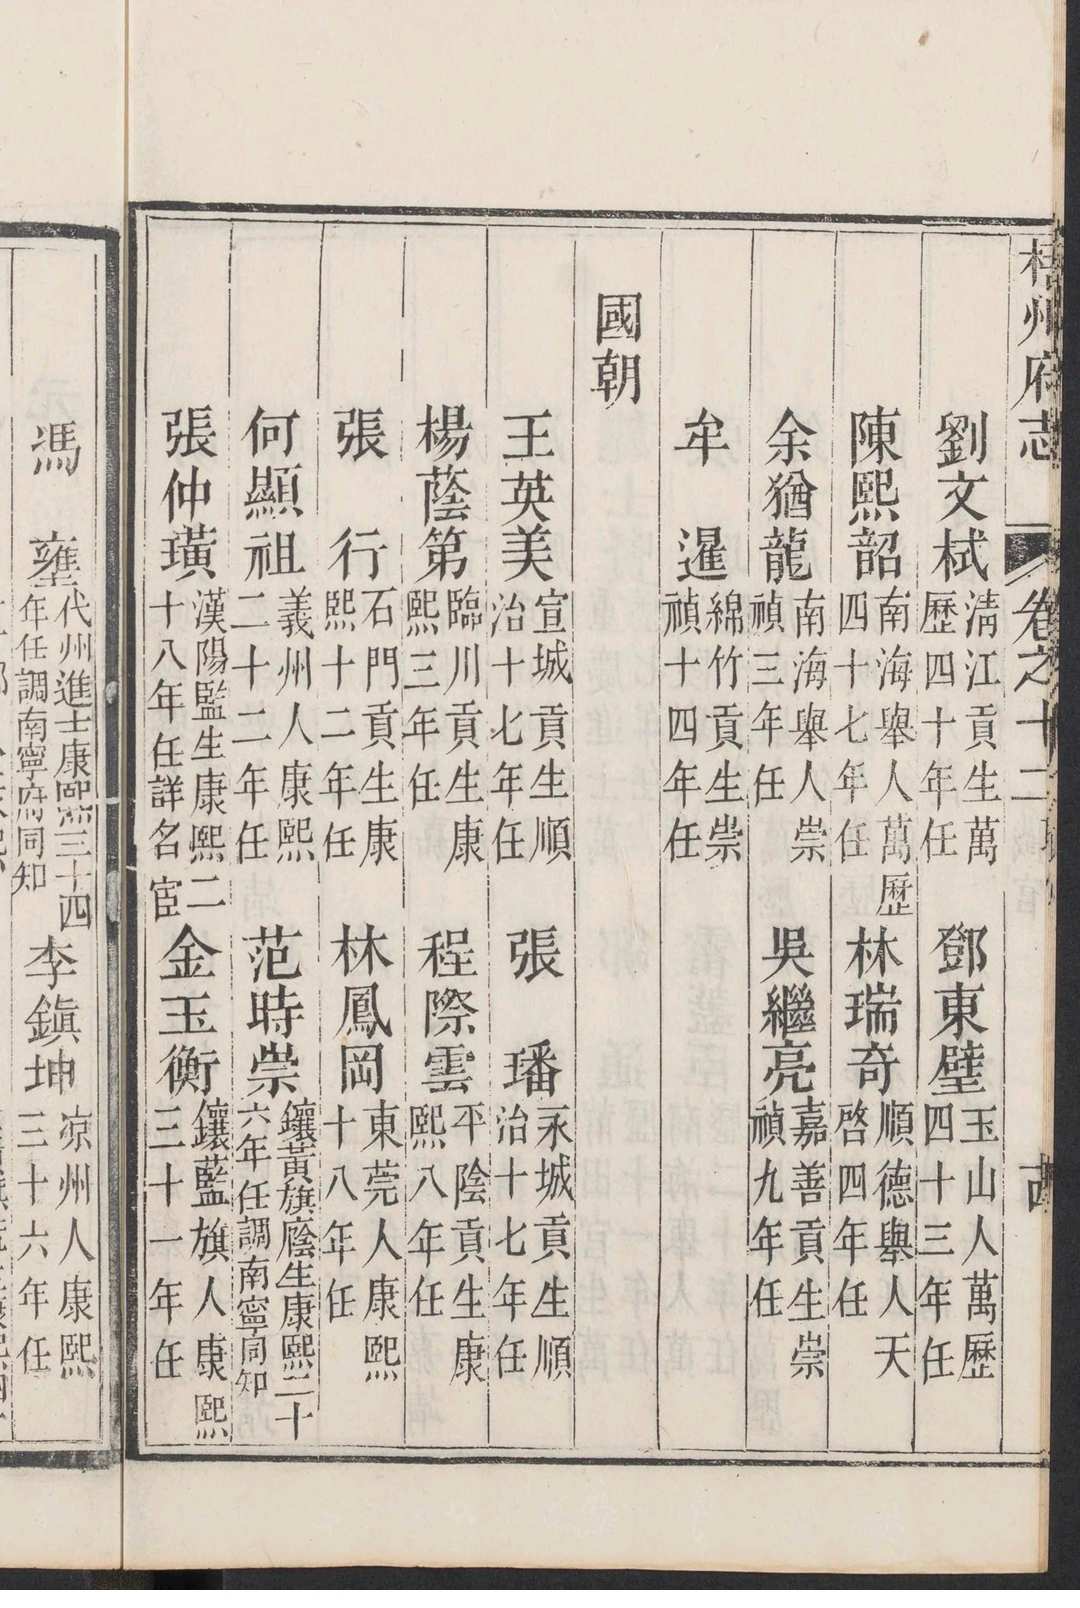 梧州府志 卷之十二
劉文栻 清江貢生萬歷四十年任 鄧東璧 玉山人萬歷四十三年任
陳熙韶 南海舉人萬歷四十七年任 林瑞奇 順德舉人天啓四年任
余猶龍 南海舉人崇禎三年任 吳繼亮 嘉善貢生崇禎九年任
牟暹 綿竹貢生崇禎十四年任
國朝
王英美 宣城貢生順治十七年任 張璠 永城貢生順治十七年任
楊蔭第 臨川貢生康熙三年任 程際雲 平陰貢生康熙八年任
張行 石門貢生康熙十二年任 林鳳岡 東莞人康熙十八年任
何顯祖 義州人康熙二十二年任 范時崇 鑲黃旗廕生康熙二十六年任調南寧同知
張仲璜 漢陽監生康熙二十八年任詳名宦 金玉衡 鑲藍旗人康熙三十一年任
馮壅 代州進士康熙三十四年任調南寧府同知 李鎮坤 凉州人康熙三十六年任